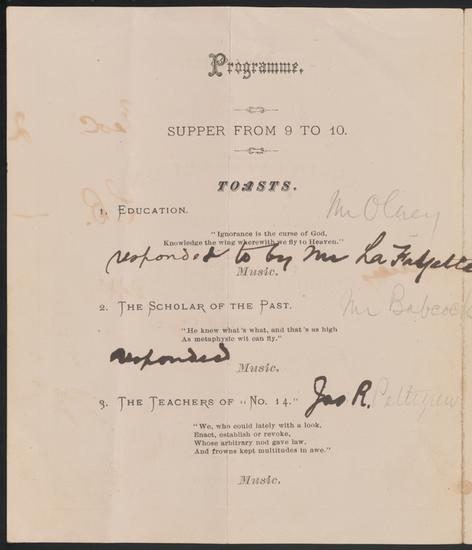 Programme.
SUPPER FROM 9 TO 10.
TOASTS.
1. EDUCATION.
Mr Olney
"Ignorance is the curse of God,
Knowledge the wing wherewith we fly to Heaven."
responded to by Mr La Fayette
Music.
2. THE SCHOLAR OF THE PAST.
Mr Babcock
"He knew what's what, and that's as high
As metaphysic wit can fly."
responded
Music.
3. THE TEACHERS OF "No. 14." Jas R. Pettigrew
"We, who could lately with a look,
Enact, establish or revoke,
Whose arbitrary nod gave law,
And frowns kept multitudes in awe."
Music.